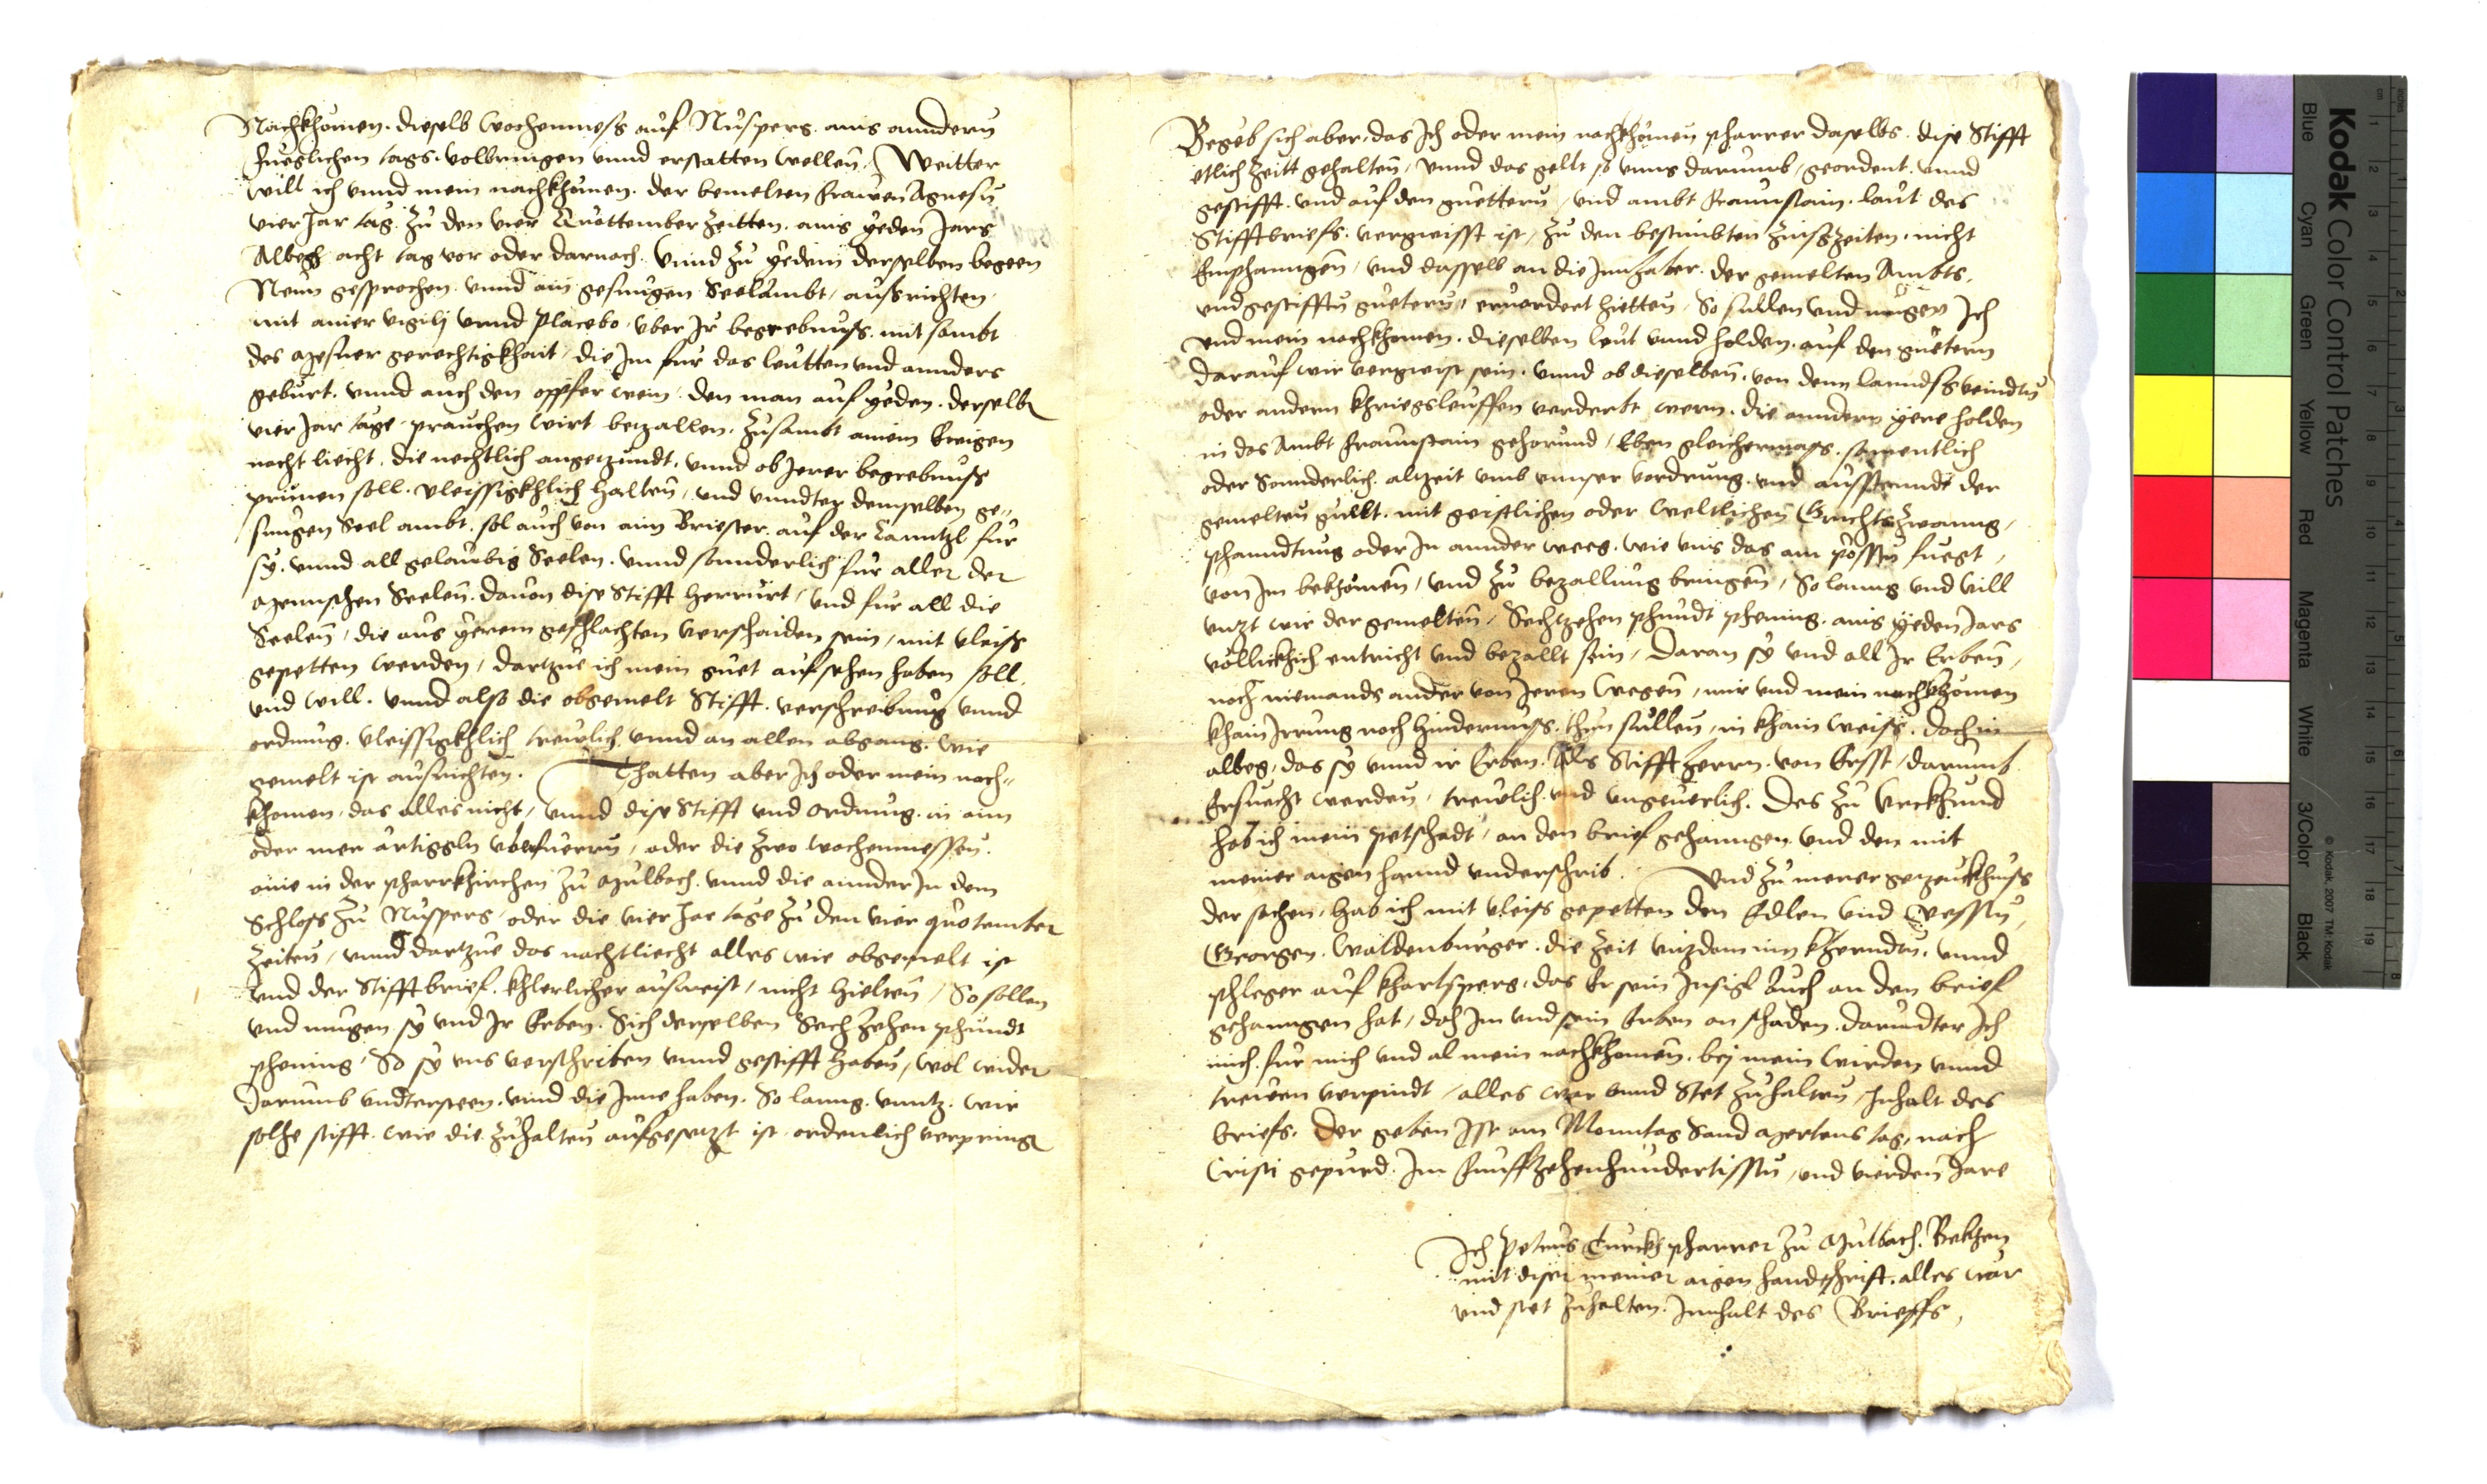 Nachkhomen. dieselb wochenmess auf Nuspers. ains anndern
fueglichen tags. volbringen vnnd erstatten wellen. Weitter
will ich vnnd mein nachkhumen. der bemelten frawen Agnesn
vier Jar tag. zu den vier Quottember Zeitten. ains yeden Jars
Albeg acht tag vor oder darnach. Vnnd zu yedem derselben begeen
Neun gesprochen. vnnd ain gesungen Seelambt, ausrichten
mit ainer vigilj vnnd Placebo. vber Jr begrebnuss. mit sambt
des mesner gerechtigkhait, die Jm fur das leutten vnd annders
geburt. vnnd auch den opffer wein. den man auf yeden. derselben
vier Jar tage. prauchen wirt bezallen. Zusambt ainem Ewigen
nacht liecht. die nechtlich angezundt. vnnd ob Jerer begrebnuss
prinnen soll. vleissigkhlich halten, vnd vnndter demselben ge-
sungen Seel ambt. sol auch von aim Briester. auf der Canntzl fur
sy. vnnd all gelaubig Seelen. vnnd sonnderlich fur aller der
menschen Seelen. dauon dise Stifft herrurt, vnd fur all die
Seelen, die aus yerem geschlachten verschaiden sein, mit vleiss
gepetten werden, dartzue ich mein guet aufsehen haben soll.
vnd will. vnnd also die obgemelt Stifft. verschreibung vnnd
ordnung. vleissigkhlich trewlich vnnd an allen abgang. wie
gemelt ist ausrichten. Thatten aber Jch oder mein nach-
khomen. das alles nicht, vnnd dise Stifft vnd ordnung. in aim
oder mer artiggln vberfuern, oder die zwo wochenmessen.
aine in der pharrkhirchen zu Mulbach. vnnd die annder Jn dem
Schloss zu Nuspers, oder die vier Jar tage zu den vier quotember
zeiten, vnnd dartzue das nachtliecht alles wie obgemelt ist
vnd der Stifftbrief. khlerlicher ausweist, nicht hielten, So sollen
vnd mugen sy vnd Jr Erben. Sich derselben Sechzehen phundt
phening, So sy vns verschriben vnnd gestifft haben, wol wider
darumb vndtersteen. vnnd die Jnne haben. So lanng. vnntz. wir
solhe stifft. wie die zuhalten aufgesetzt ist ordenlich verpringen
Begeb sich aber. das Jch oder mein nachkhomen pharrer daselbs. dise Stifft
etlich Zeitt gehalten, vnnd das gellt so vnns darumb, geordent. vnnd
gestifft. vnd auf den guettern, vnd ambt fraunstain. laut des
Stifftbriefs. vergwisst ist, zu den bestimbten Zinsszeiten. nicht
Emphanngen, vnd dasselb an die Jnnhaber. der gemelten Ambts.
vnd gestifften guetern, eruordert hietten, So sullen vnd mugen Jch
vnd mein nachkhomen. dieselben leut vnnd holden. auf den guetern
darauf wir vergwist sein. vnnd ob dieselben. von denn lanndsveindtn
oder andern khriegsleuffen verderbt wern. die anndern yere holden
in das Ambt fraunstain gehorund, Eben gleichermass. samentlich
oder Sonnderlich. altzeit vmb vnnser vordrung. vnd ausstennde der
gemelten gullt. mit geistlichen oder weltlichen Gerichtzwanng,
phanndtung oder Jn annder weeg. wie vns das am pössten fuegt,
von Jm bekhomen, vnd zu bezallung bringen, So lanng vnd vill
vntzt wir der gemelten, Sechtzehen phundt phening. ains yeden Jars
vollickhlich entricht vnd bezallt sein, Daran sy vnd all Jr Erben,
noch niemands ander von Jeren wegen, mir vnd mein nachkhomen
khain Jrrung noch hindernuss. thun sullen, in khain weiss. doch in
albeg, das sy vnnd ir Erben. Als Stifftherrn. von Erst, darumb
Ersuecht werden, trewlich vnd vngeuerlich. Des zu Vrkhund
hab ich mein petschadt, an den brief gehanngen vnd den mit
meiner aigen hannd vnderschrib. Vnd zu merer gezeugkhnuss
der sachen. hab ich mit vleiss gepetten den Edlen vnd Vessten,
Georgen. Waldenburger. die zeit vitzdom inn khernden. vnnd
phleger auf kharlsperg, das Er sein Jnsigl Auch an den brief
gehanngen hat, doch Jm vnd sein Erben on schaden. darundter Jch
mich. fur mich vnd al mein nachkhomen. bej mein wirden vnnd
trewen verpindt, alles war vnnd Stet zuhalten, Jnhalt des
briefs. Der geben Jst am Monntag Sand Mertens tag, nach
Cristi gepurd. Jm funffzehenhundertissten, vnd vierden Jare
Jch Petrus Turckh pharrer zu Mulbach. Bekhen
mit diser meiner aigen handschrift. alles war
vnd stet zuhalten. Jnnhalt des Brieffs,
Kodak Color Control Patches
Blue Cyan Green Yellow Red Magenta White 3/Color Black
© Kodak, 2007 TM: Kodak